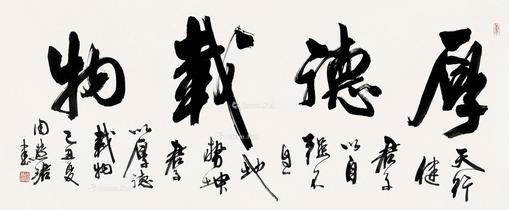 厚德載物
天行
健
君子
以自
强不
息
地
势坤
君子
以厚德
载物
丑夏
周慧珺
书